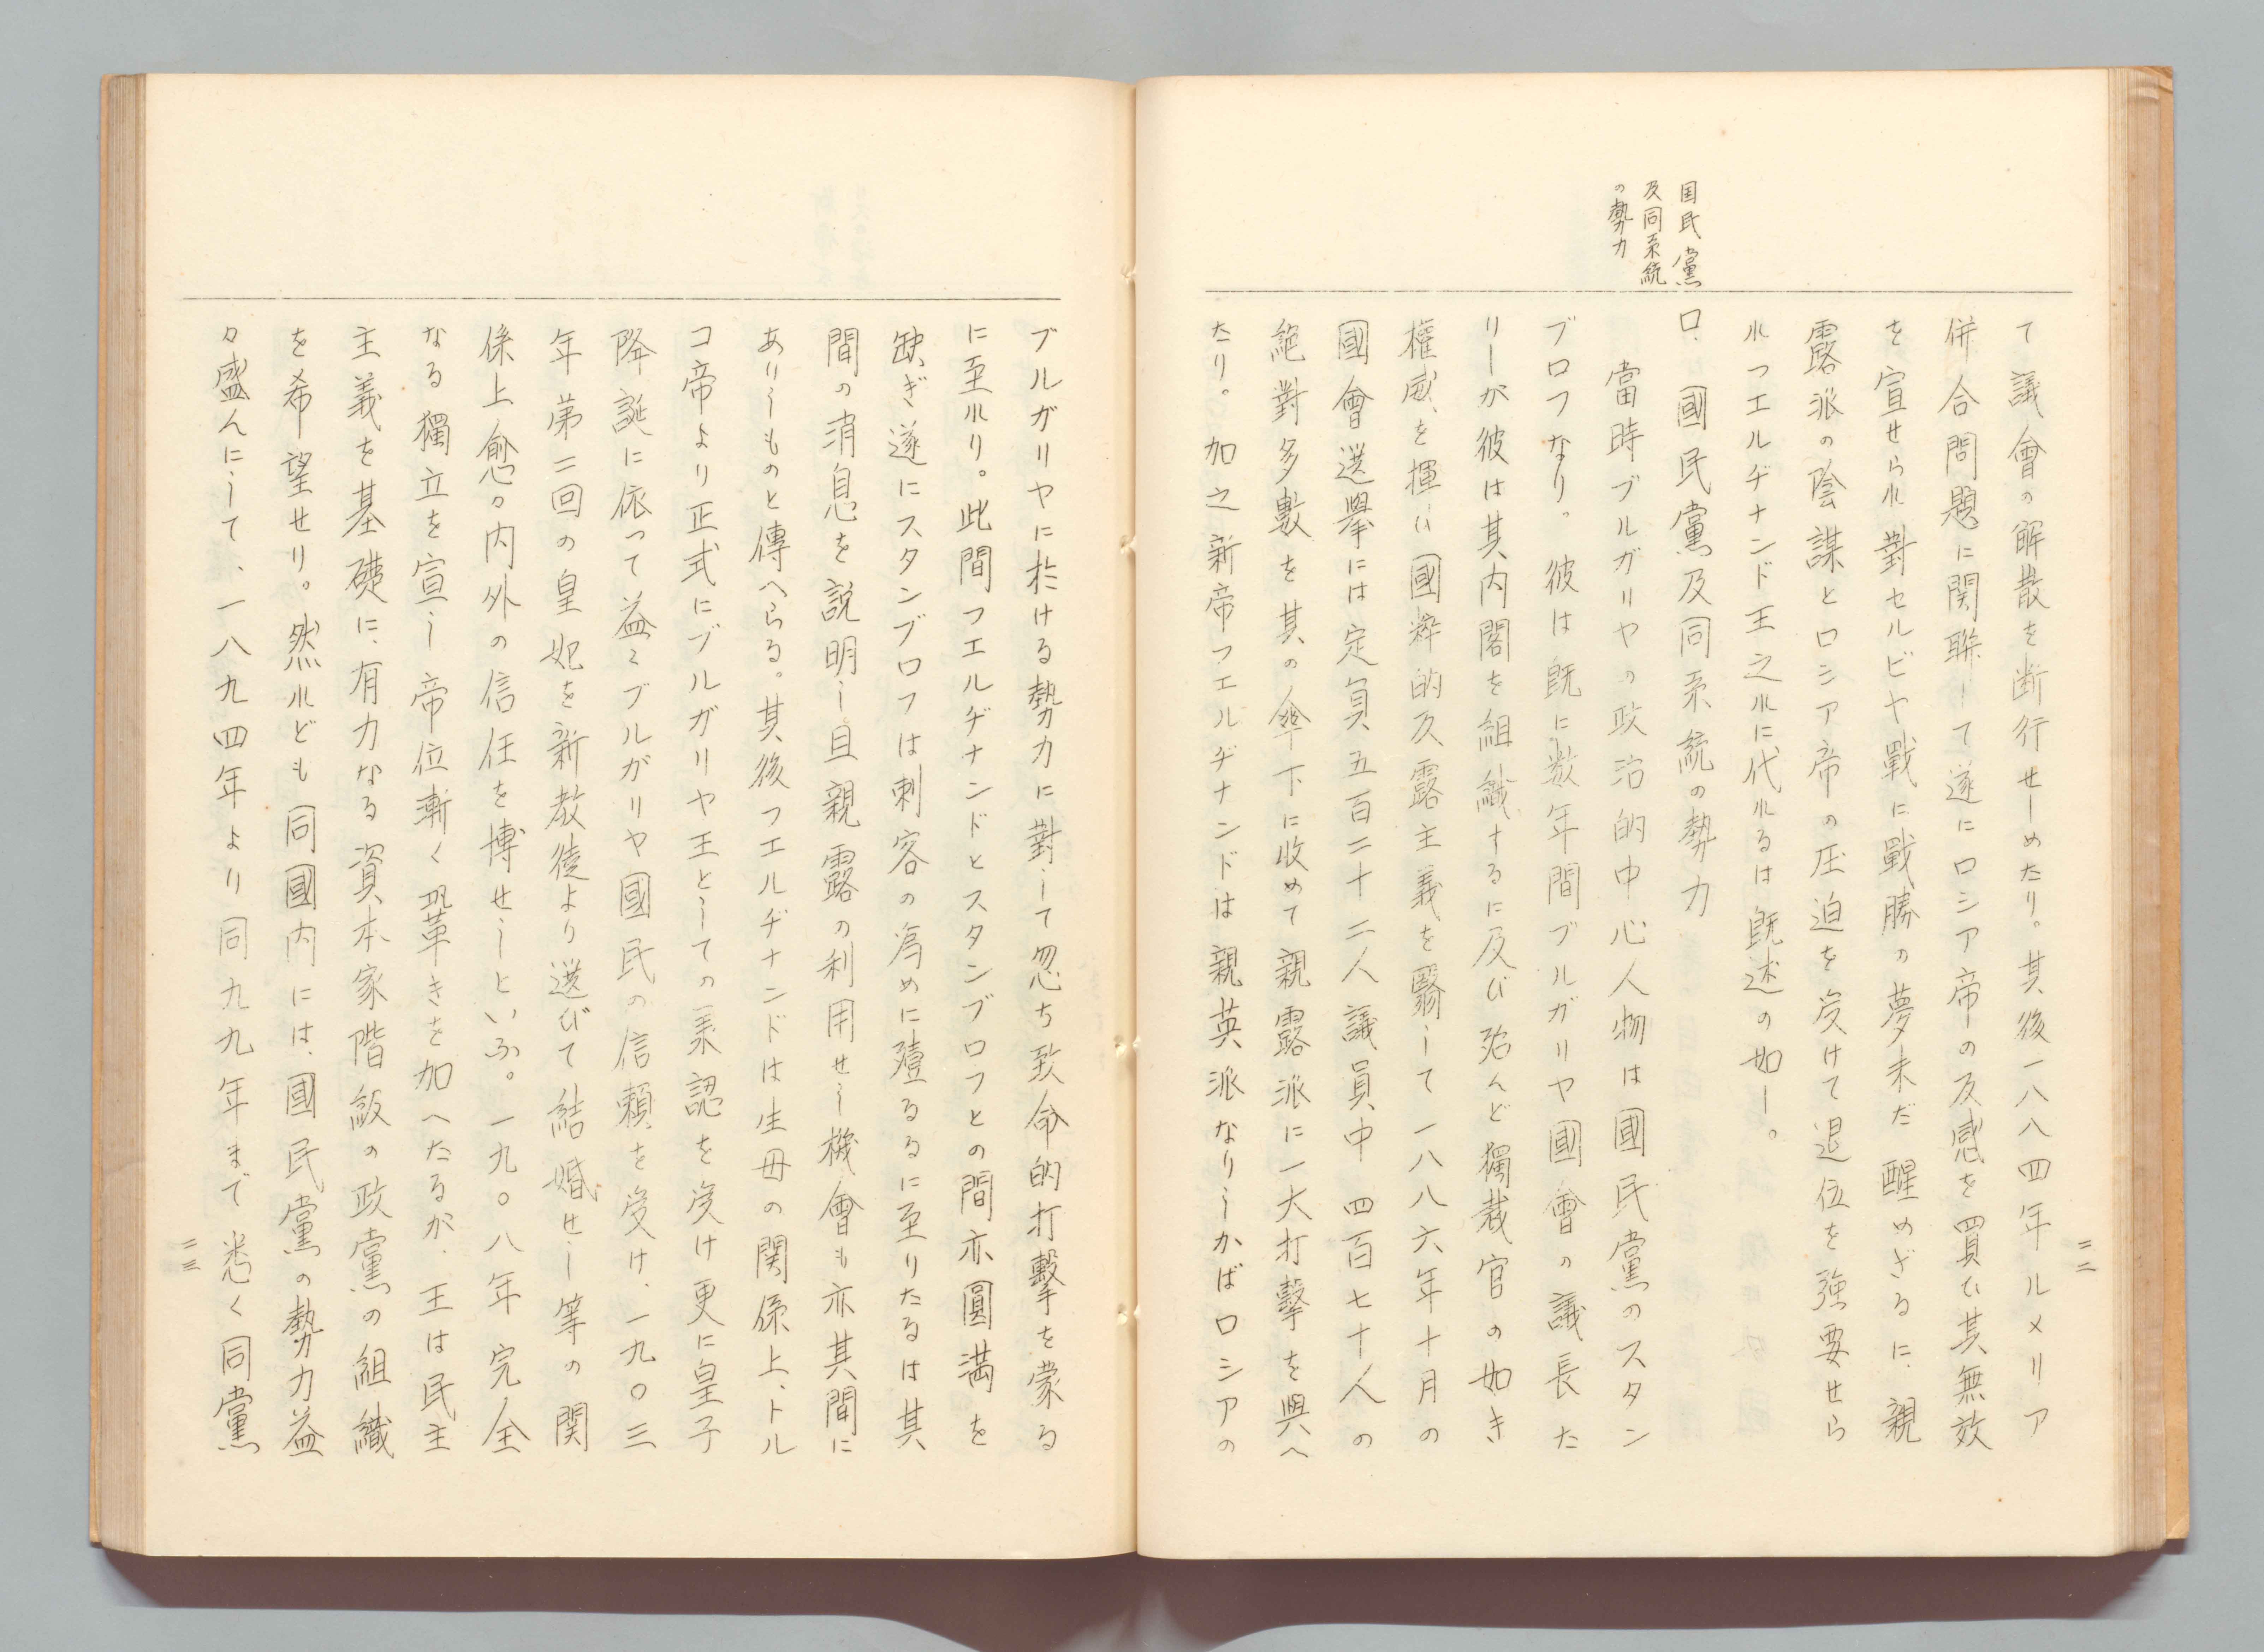 二二
て議會の解散を断行せしめたり。其後一八八四年ルメリア
併合問題に関聯して遂にロシア帝の反感を買ひ其無效
を宣せられ對セルビヤ戰に戰勝の夢未だ醒めざるに、親
露派の陰謀とロシア帝の圧迫を受けて退位を強要せら
れフエルヂナンド王之れに代れるは既述の如し。
国民黨
及同系統
の勢力
ロ、國民黨及同系統の勢力
當時ブルガリヤの政治的中心人物は國民黨のスタン
ブロフなり。彼は既に数年間ブルガリヤ國會の議長た
りしが彼は其内閣を組織するに及び殆んど獨裁官の如き
權威を揮ひ國粹的反露主義を翳して一八八六年十月の
國會選擧には定員五百二十二人議員中四百七十人の
絶對多數を其の傘下に收めて親露派に一大打擊を與へ
たり。加之新帝フエルヂナンドは親英派なりしかばロシアの
ブルガリヤに於ける勢力に對して忽ち致命的打擊を蒙る
に至れり。此間フエルヂナンドとスタンブロフとの間亦圓満を
缺ぎ遂にスタンブロフは刺客の為めに殪るるに至りたるは其
間の消息を説明し且親露の利用せし機會も亦其間に
ありしものと傳へらる。其後フエルヂナンドは生母の関係上、トル
コ帝より正式にブルガリヤ王としての承認を受け更に皇子
降誕に依って益々ブルガリヤ國民の信頼を受け、一九〇三
年第二回の皇妃を新教徒より選びて結婚せし等の関
係上愈々内外の信任を博せしといふ。一九〇八年完全
なる獨立を宣し帝位漸く鞏きを加へたるが、王は民主
主義を基礎に、有力なる資本家階級の政黨の組織
を希望せり。然れども同國内には、國民黨の勢力益
々盛んにして、一八九四年より同九九年まで悉く同黨
二三